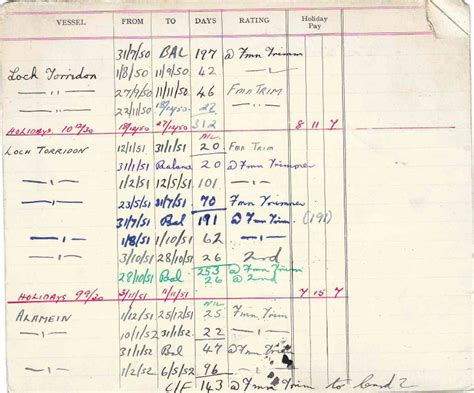 VESSEL FROM TO DAYS RATING Holiday Pay
31/7/50 BAL 197 @ Fmn Trimm
Loch Torridon 1/8/50 11/9/50 42
—"— 27/9/50 11/11/50 46 Fmn TRIM
—"— 22/11/50 18/12/50 27
HOLIDAYS. 10 12/30 18/12/50 27/12/50 312 8 11 7
LOCH TORRIDON 12/12/51 31/1/51 NIL 20 Fmn TRIM
31/1/51 Balance 20 @ Fmn Trimmer
—"— 1/2/51 12/5/51 101 —"—
—"— 23/5/51 31/7/51 70 Fmn Trimmer
31/7/51 Bal 191 @ Fmn Trim. (191)
—"— 1/8/51 1/10/51 62 —"—
—"— 3/10/51 28/10/51 26 2nd
28/10/51 Bal 253 @ Fmn Trim
26 @ 2nd
HOLIDAYS 99/30 2/11/51 11/11/51 7 15 7
ALAMEIN 1/12/51 25/12/51 NIL 25 Fmn Trim
—"— 10/1/52 31/1/52 22 —"—
31/1/52 Bal 47 @ Fmn Trim
—"— 1/2/52 6/5/52 96 —"—
C/F 143 @ Fmn Trim to Card 2